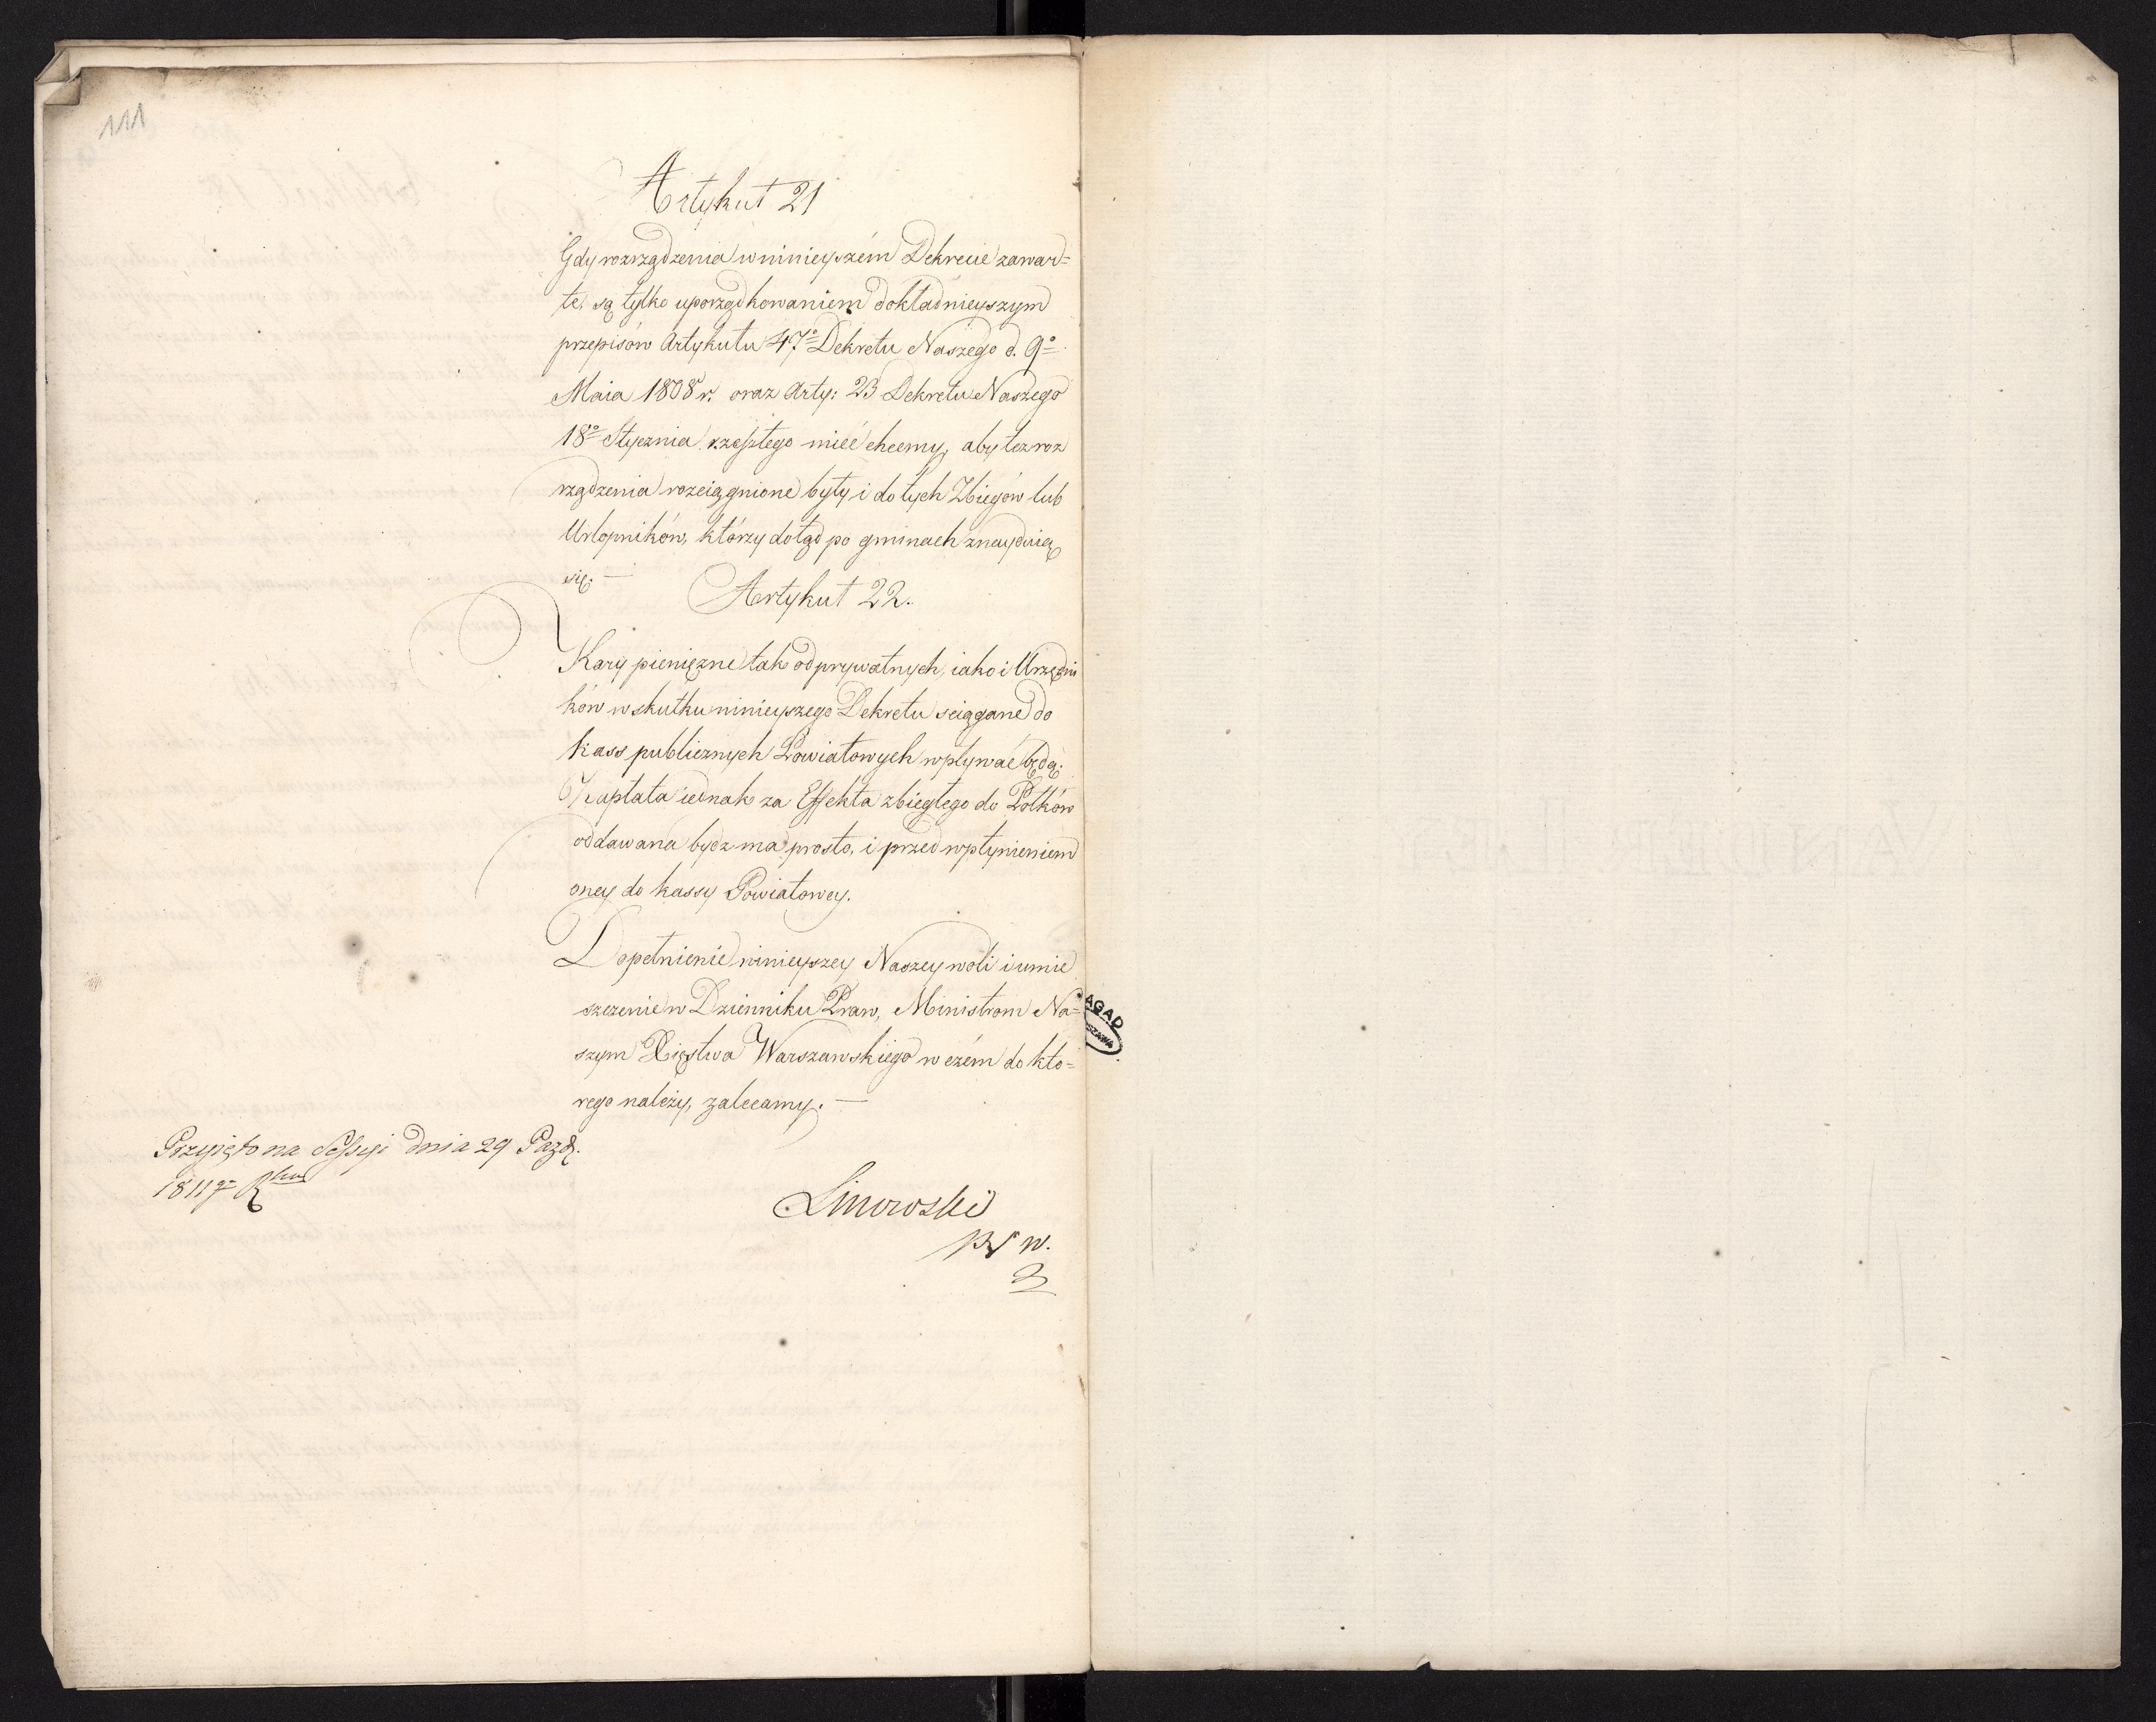 111
Artykuł 21
Gdy rozrządzenia w ninieyszém Dekrecie zawar=
te, są tylko uporządkowaniem dokładnieyszym
przepisów Artykułu 47° Dekretu Naszego d. 9°
Maia 1808 r. oraz Arty: 23 Dekretu Naszego
18° Stycznia mieć chcemy, aby też roz
rządzenia rozciągnione były i do tych Zbiegów lub
Urlopników, którzy dotąd po gminach znayduią
się. —
Artykuł 22.
Kary pieniężne tak od prywatnych, iako i Urzędni
ków w skutku ninieyszego Dekretu sciągane do
kass publicznych Powiatowych wpływać będą;
Zapłata iednak za Effekta zbiegłego do Połków
oddawana bydz ma prosto, i przed wpłynieniem
oney do kassy Powiatowey.
Dopełnienie ninieyszey Naszey woli i umie
szczenie w Dzienniku Praw, Ministrom Na=
szym Xięstwa Warszawskiego w czém do któ=
rego należy, zalecamy. —
Przyięto na Sessyi dnia 29 Pazd.
1811 Rku
Linowski
AGAD